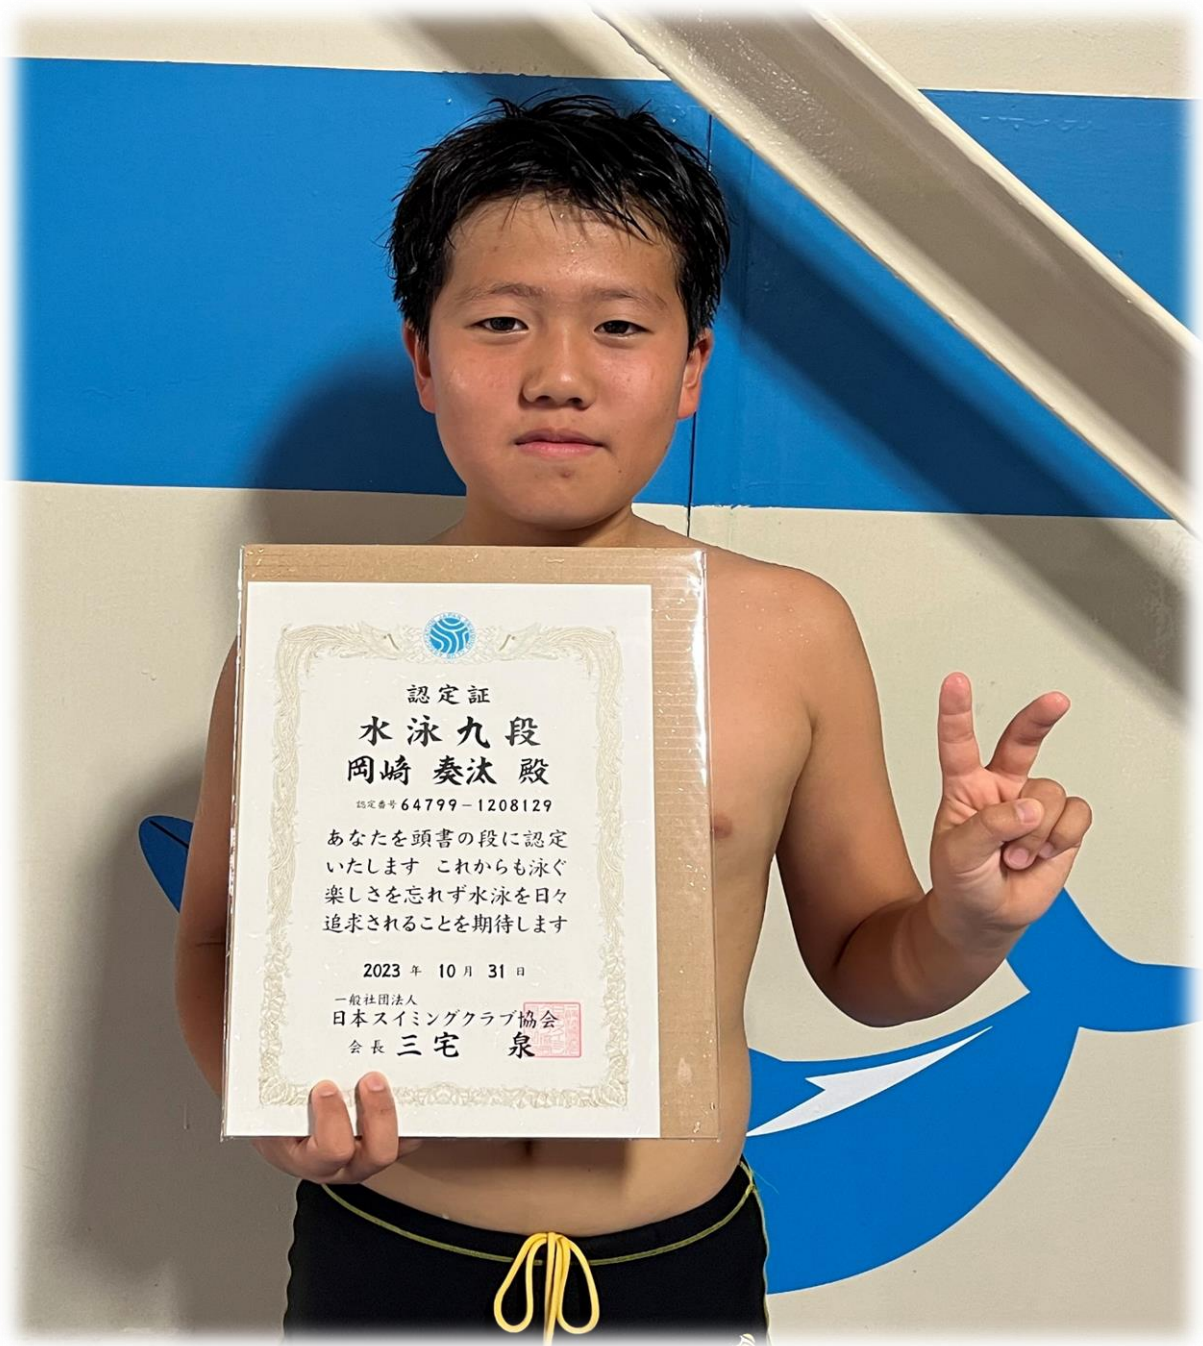 認定証
水泳九段
岡崎 奏汰 殿
認定番号 64799-1208129
あなたを頭書の段に認定
いたします これからも泳ぐ
楽しさを忘れず水泳を日々
追求されることを期待します
2023 年 10 月 31 日
一般社団法人
日本スイミングクラブ協会
会長 三宅 泉